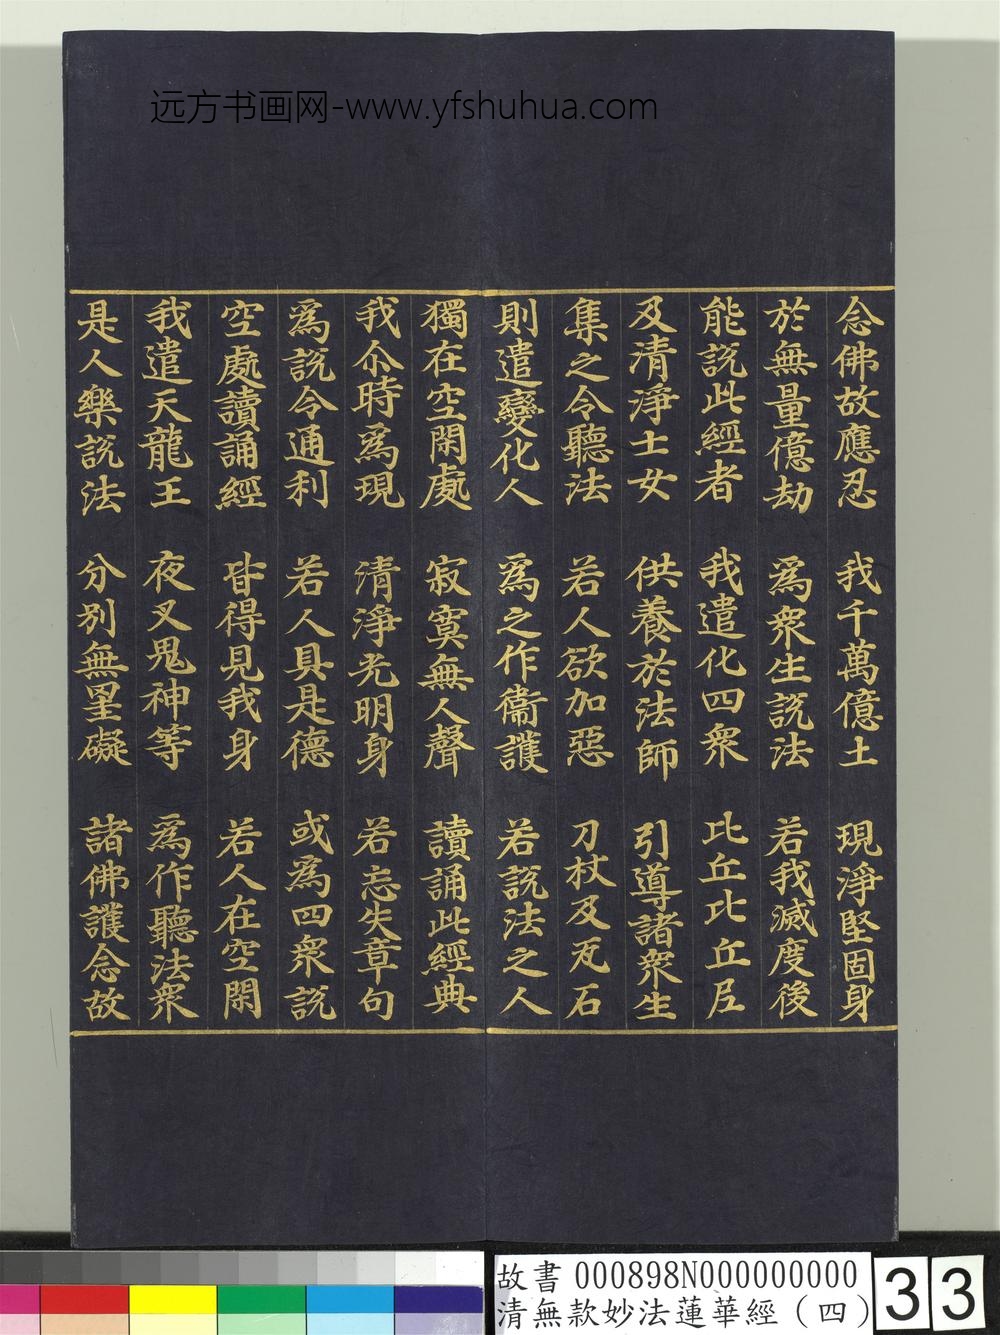 远方书画网-www.yfshuhua.com
念佛故應忍 我千萬億土 現淨堅固身
於無量億劫 爲衆生說法 若我滅度後
能說此經者 我遣化四衆 比丘比丘尼
及清淨士女 供養於法師 引導諸衆生
集之令聽法 若人欲加惡 刀杖及瓦石
則遣變化人 爲之作衞護 若說法之人
獨在空閑處 寂寞無人聲 讀誦此經典
我尒時爲現 清淨光明身 若忘失章句
爲說令通利 若人具是德 或爲四衆說
空處讀誦經 皆得見我身 若人在空閑
我遣天龍王 夜叉鬼神等 爲作聽法衆
是人樂說法 分别無罣礙 諸佛護念故
故書 000898N000000000
清無款妙法蓮華經（四）
33